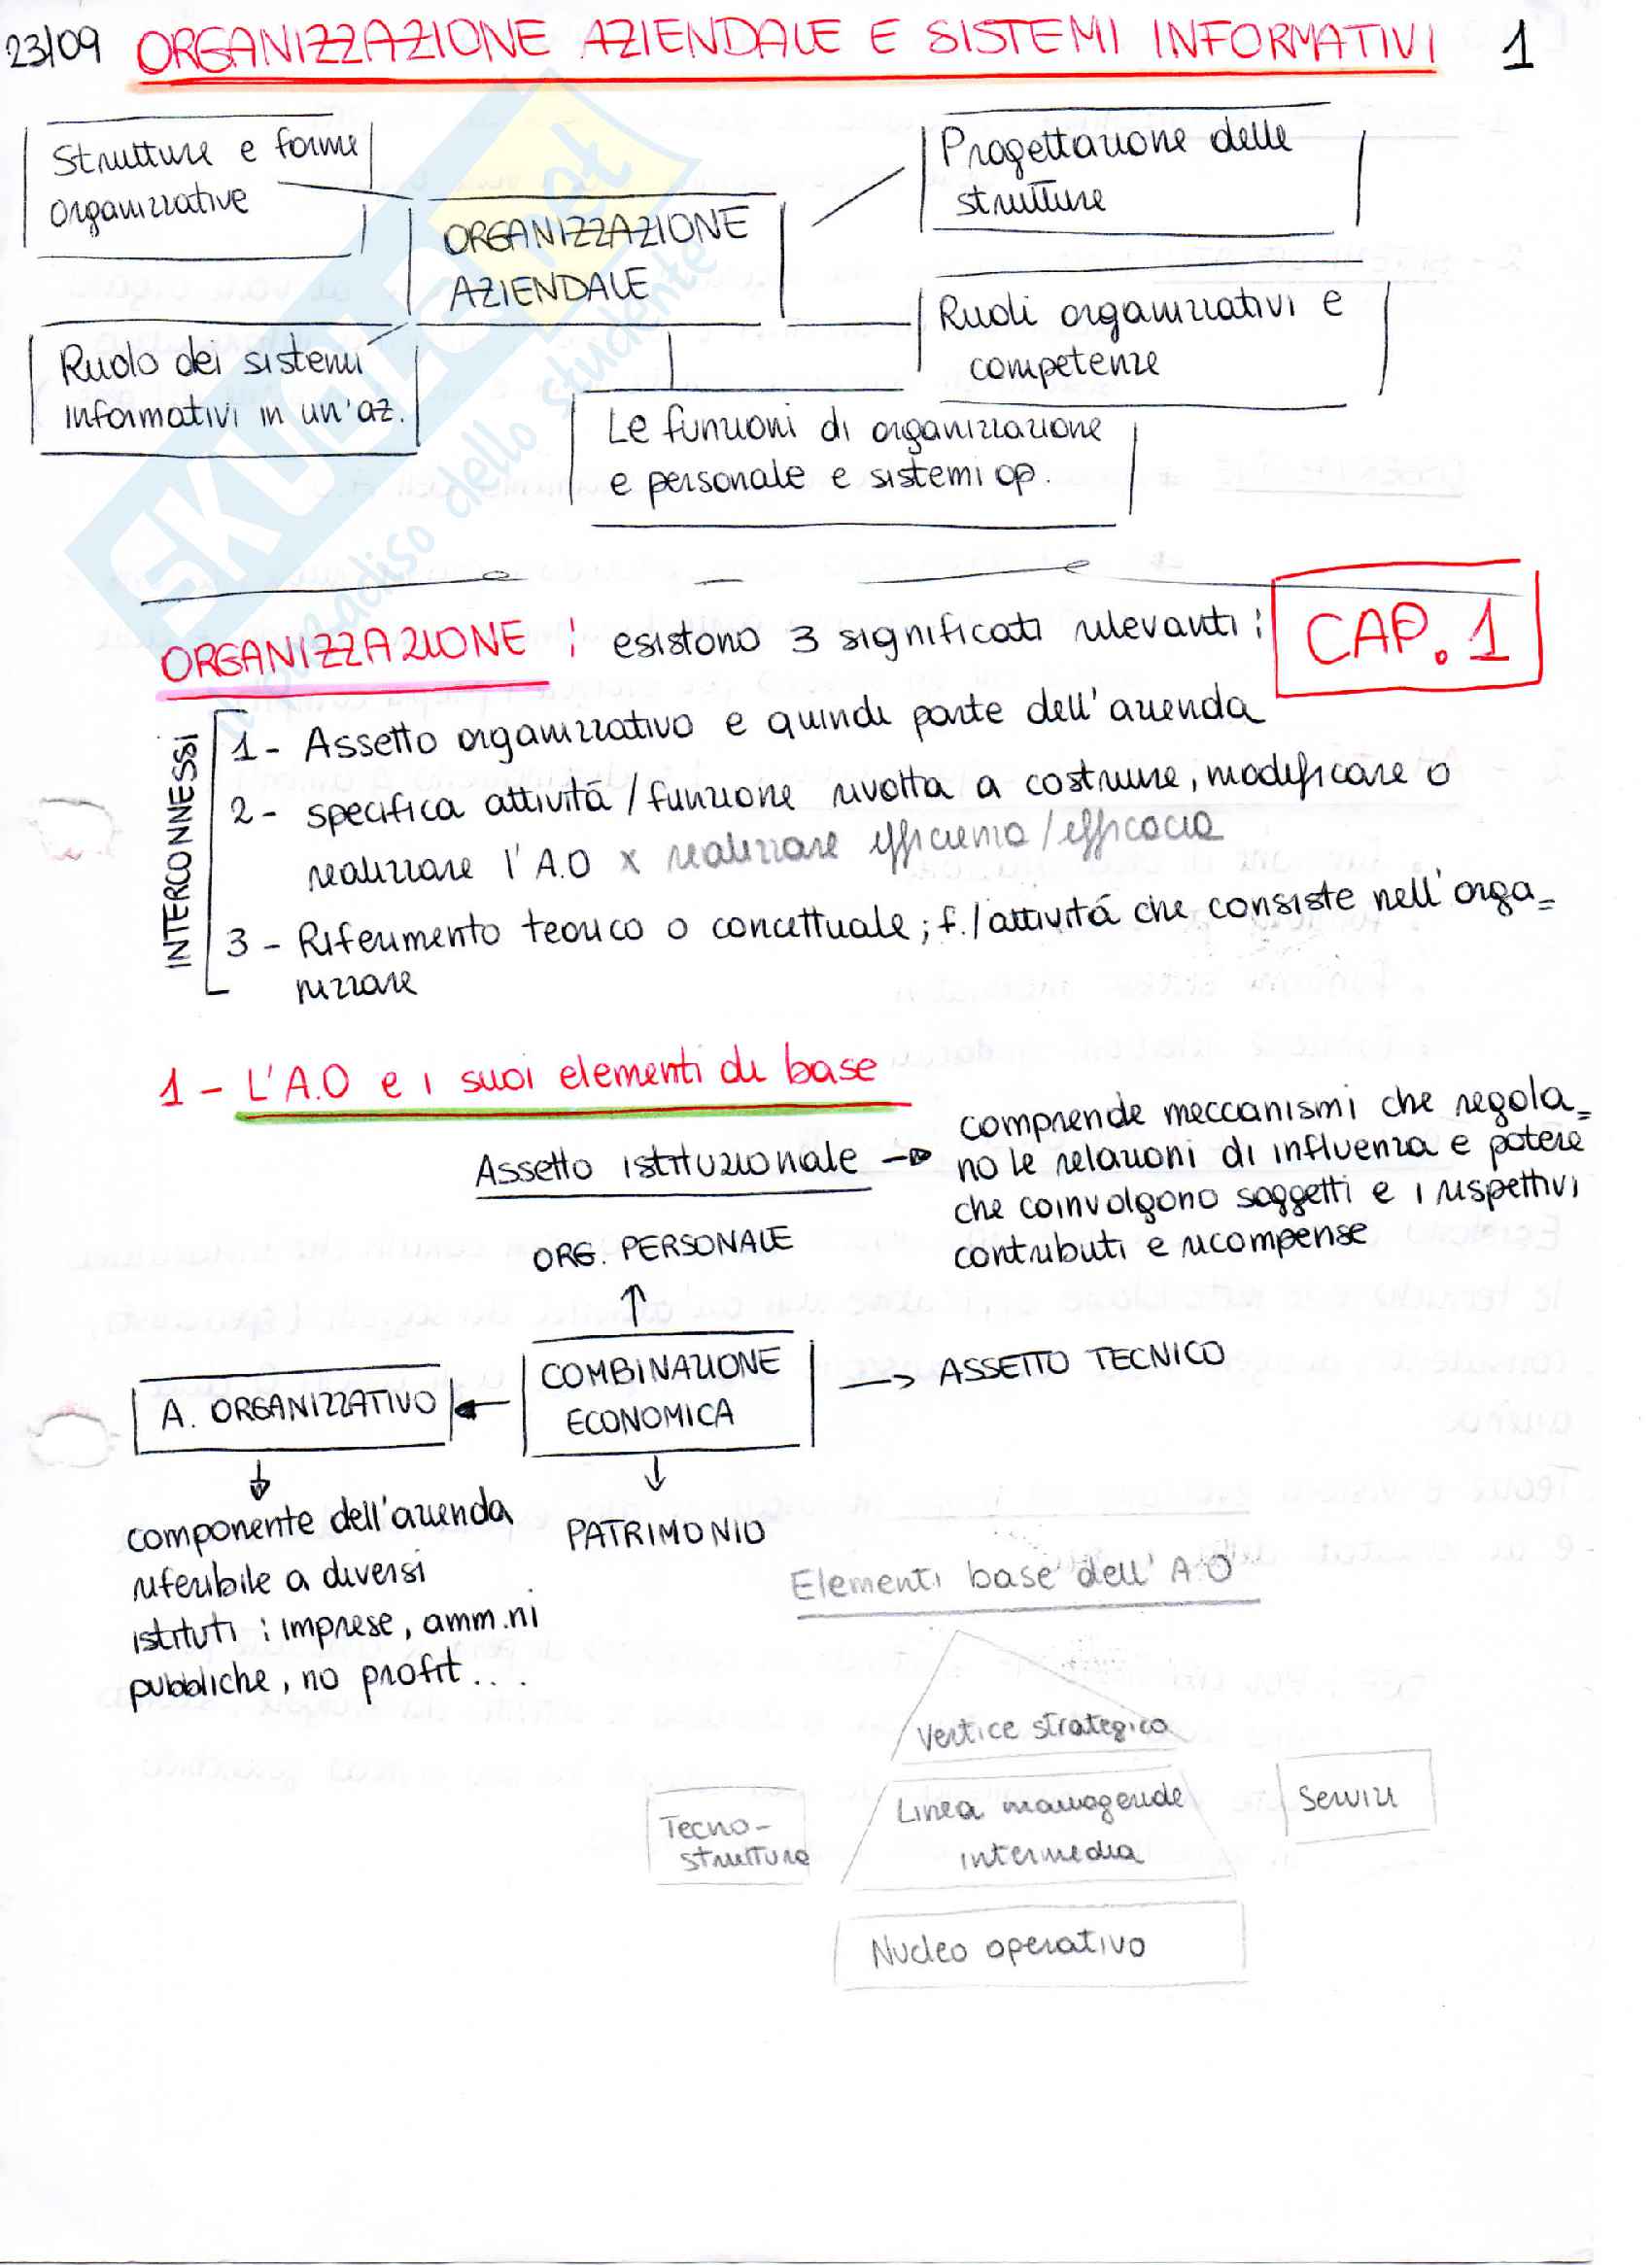 23/09 ORGANIZZAZIONE AZIENDALE E SISTEMI INFORMATIVI 1
Strutture e forme
organizzative
ORGANIZZAZIONE
AZIENDALE
Progettazione delle
strutture
Ruolo dei sistemi
informativi in un'az.
Ruoli organizzativi e
competenze
Le funzioni di organizzazione
e personale e sistemi op.
SKUOLA.net
il paradiso dello studente
ORGANIZZAZIONE : esistono 3 significati rilevanti :
CAP. 1
INTERCONNESSI
1- Assetto organizzativo e quindi parte dell'azienda
2- specifica attività/funzione rivolta a costruire, modificare o
realizzare l'A.O x realizzare efficienza/efficacia
3- Riferimento teorico o concettuale; f./attività che consiste nell'orga=
nizzare
1- L'A.O e i suoi elementi di base
Assetto istituzionale →
comprende meccanismi che regola=
no le relazioni di influenza e potere
che coinvolgono soggetti e i rispettivi
contributi e ricompense
ORG. PERSONALE
↑
A. ORGANIZZATIVO ←
COMBINAZIONE
ECONOMICA
→ ASSETTO TECNICO
↓
PATRIMONIO
↓
componente dell'azienda
riferibile a diversi
istituti : imprese, amm.ni
pubbliche, no profit...
Elementi base dell'A.O
Vertice strategico
Tecno-
struttura
Linea manageriale
intermedia
Servizi
Nucleo operativo